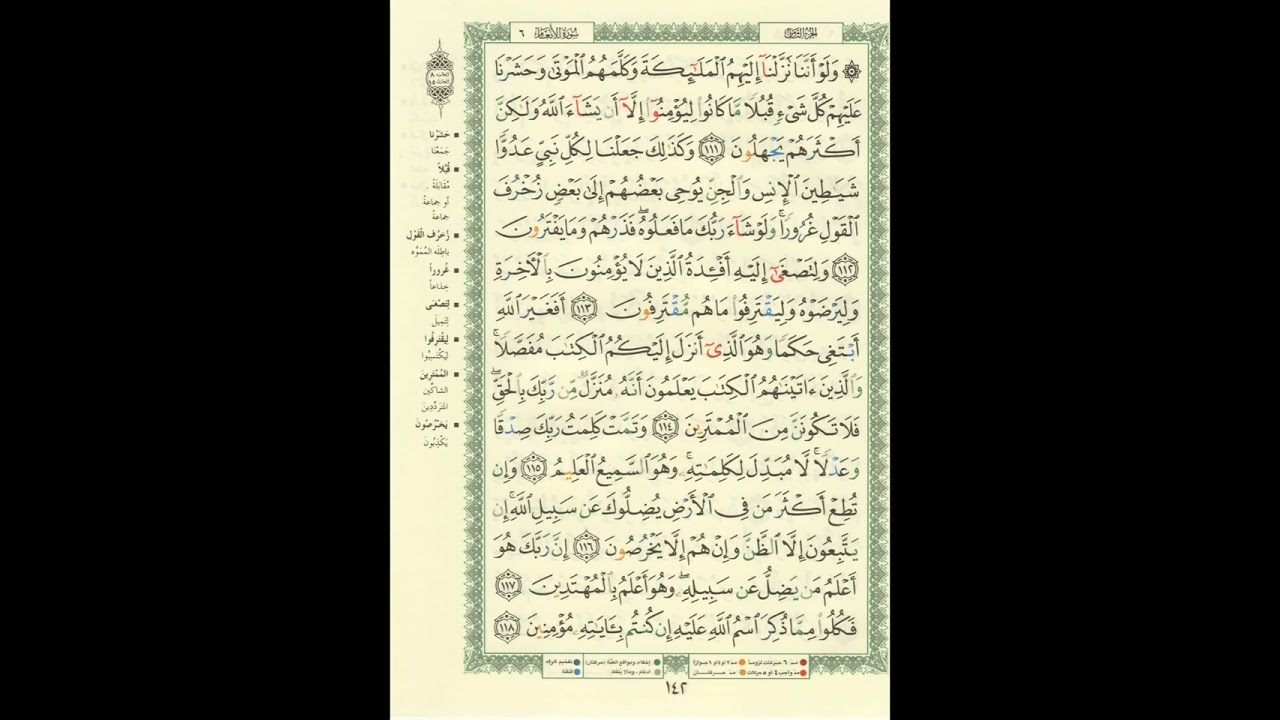 الجزء الثامن
سورة الأنعام ٦
۞ وَلَوْ أَنَّنَا نَزَّلْنَآ إِلَيْهِمُ ٱلْمَلَـٰٓئِكَةَ وَكَلَّمَهُمُ ٱلْمَوْتَىٰ وَحَشَرْنَا
عَلَيْهِمْ كُلَّ شَىْءٍ قُبُلًا مَّا كَانُوا۟ لِيُؤْمِنُوٓا۟ إِلَّآ أَن يَشَآءَ ٱللَّهُ وَلَـٰكِنَّ
أَكْثَرَهُمْ يَجْهَلُونَ ١١١ وَكَذَٰلِكَ جَعَلْنَا لِكُلِّ نَبِىٍّ عَدُوًّا
شَيَـٰطِينَ ٱلْإِنسِ وَٱلْجِنِّ يُوحِى بَعْضُهُمْ إِلَىٰ بَعْضٍ زُخْرُفَ
ٱلْقَوْلِ غُرُورًا ۚ وَلَوْ شَآءَ رَبُّكَ مَا فَعَلُوهُ ۖ فَذَرْهُمْ وَمَا يَفْتَرُونَ
١١٢ وَلِتَصْغَىٰٓ إِلَيْهِ أَفْـِٔدَةُ ٱلَّذِينَ لَا يُؤْمِنُونَ بِٱلْـَٔاخِرَةِ
وَلِيَرْضَوْهُ وَلِيَقْتَرِفُوا۟ مَا هُم مُّقْتَرِفُونَ ١١٣ أَفَغَيْرَ ٱللَّهِ
أَبْتَغِى حَكَمًا وَهُوَ ٱلَّذِىٓ أَنزَلَ إِلَيْكُمُ ٱلْكِتَـٰبَ مُفَصَّلًا ۚ
وَٱلَّذِينَ ءَاتَيْنَـٰهُمُ ٱلْكِتَـٰبَ يَعْلَمُونَ أَنَّهُۥ مُنَزَّلٌ مِّن رَّبِّكَ بِٱلْحَقِّ ۖ
فَلَا تَكُونَنَّ مِنَ ٱلْمُمْتَرِينَ ١١٤ وَتَمَّتْ كَلِمَتُ رَبِّكَ صِدْقًا
وَعَدْلًا ۚ لَّا مُبَدِّلَ لِكَلِمَـٰتِهِۦ ۚ وَهُوَ ٱلسَّمِيعُ ٱلْعَلِيمُ ١١٥ وَإِن
تُطِعْ أَكْثَرَ مَن فِى ٱلْأَرْضِ يُضِلُّوكَ عَن سَبِيلِ ٱللَّهِ ۚ إِن
يَتَّبِعُونَ إِلَّا ٱلظَّنَّ وَإِنْ هُمْ إِلَّا يَخْرُصُونَ ١١٦ إِنَّ رَبَّكَ هُوَ
أَعْلَمُ مَن يَضِلُّ عَن سَبِيلِهِۦ ۖ وَهُوَ أَعْلَمُ بِٱلْمُهْتَدِينَ ١١٧
فَكُلُوا۟ مِمَّا ذُكِرَ ٱسْمُ ٱللَّهِ عَلَيْهِ إِن كُنتُم بِـَٔايَـٰتِهِۦ مُؤْمِنِينَ ١١٨
■ حَشَرْنا
جَمَعْنَا
■ قُبُلًا
مُقَابَلَةً
أو جماعةً
جماعةً
■ زُخْرُفَ الْقَوْلِ
باطِلَه المُمَوَّه
■ غُروراً
خِدَاعاً
■ لِتَصْغَى
لِتَمِيلَ
■ لِيَقْتَرِفُوا
لِيَكْتَسِبُوا
■ المُمْتَرِينَ
الشاكِّين
المتردِّدِينَ
■ يَخْرُصُونَ
يَكْذِبُونَ
مدّ ٦ حركات لزوماً مدّ ٢ أو ٤ أو ٦ جوازاً
مدّ واجب ٤ أو ٥ حركات مدّ حركتان
إخفاء، ومواقع الغُنَّة (حركتان) تفخيم الراء
ادغام، وما لا يُلفَظ قلقلة
١٤٢